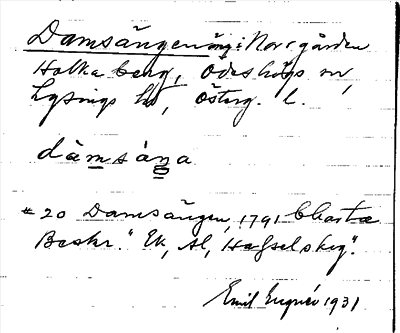 Damsängen äng: Norrgården
Holkaberg, Ödeshögs sn,
Lysings hd, Östergs. l.
dàmsáŋa
# 20 Damsängen, 1791 Charta
Beskr. "Ek, Al, Hasselskog".
Emil 1931